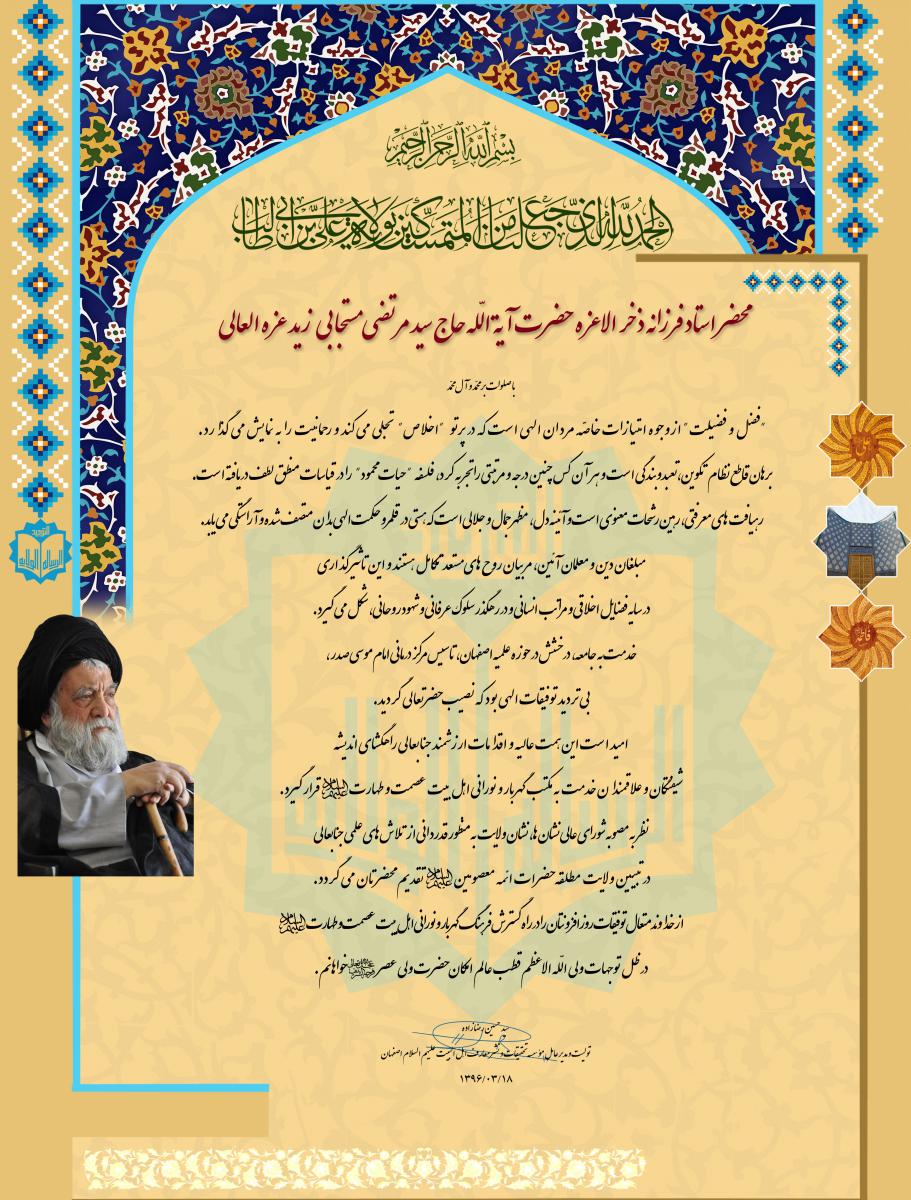 بسم الله الرحمن الرحیم
الحمدلله الذی جعلنا من المتمسکین بولایة علی بن ابی طالب
محضر استاد فرزانه ذخر الاعزه حضرت آیة اللّه حاج سید مرتضی مستجابی زید عزه العالی
با صلوات بر محمّد و آل محمّد
"فضل و فضیلت" از وجوه امتیازات خاصّه مردان الهی است که در پرتو "اخلاص" تجلی می کند و رحمانیت را به نمایش می گذارد.
برهان قاطع نظام تکوین، تعبد و بندگی است و هر آن کس چنین درجه و مرتبتی را تجربه کرد، فلسفه "حیات محمود" را در قیاسات منطق لطف دریافته است.
رهیافت های معرفتی، رهین رشحات معنوی است و آئینه دل، مظهر جمال و جلالی است که هستی در قلمرو حکمت الهی بدان متصف شده و آراستگی می یابد.
مبلغان دین و معلمان آئین، مربیان روح های مستعد تکامل هستند و این تاثیرگذاری
در سایه فضایل اخلاقی و مراتب انسانی و در رهگذر سلوک عرفانی و شهود روحانی، شکل می گیرد.
خدمت به جامعه، درخشش در حوزه علمیه اصفهان، تاسیس مرکز درمانی امام موسی صدر،
بی تردید توفیقات الهی بود که نصیب حضرتعالی گردید.
امید است این همت عالیه و اقدامات ارزشمند جنابعالی راهگشای اندیشه
شیفتگان و علاقمندان خدمت به مکتب گهربار و نورانی اهل بیت عصمت و طهارت علیهم السلام قرار گیرد.
نظر به مصوبه شورای عالی نشان ها، نشان ولایت به منظور قدردانی از تلاش های علمی جنابعالی
در تبیین ولایت مطلقه حضرات ائمه معصومین علیهم السلام تقدیم محضرتان می گردد.
از خداوند متعال توفیقات روزافزونتان را در راه گسترش فرهنگ گهربار و نورانی اهل بیت عصمت و طهارت علیهم السلام
در ظل توجهات ولی اللّه الاعظم قطب عالم امکان حضرت ولی عصر خواهانم.
سید حسین رضازاده
تولیت و مدیر عامل موسسه تحقیقات و نشر معارف اهل البیت علیهم السلام اصفهان
۱۳۹۶/۰۳/۱۸
فاطمة